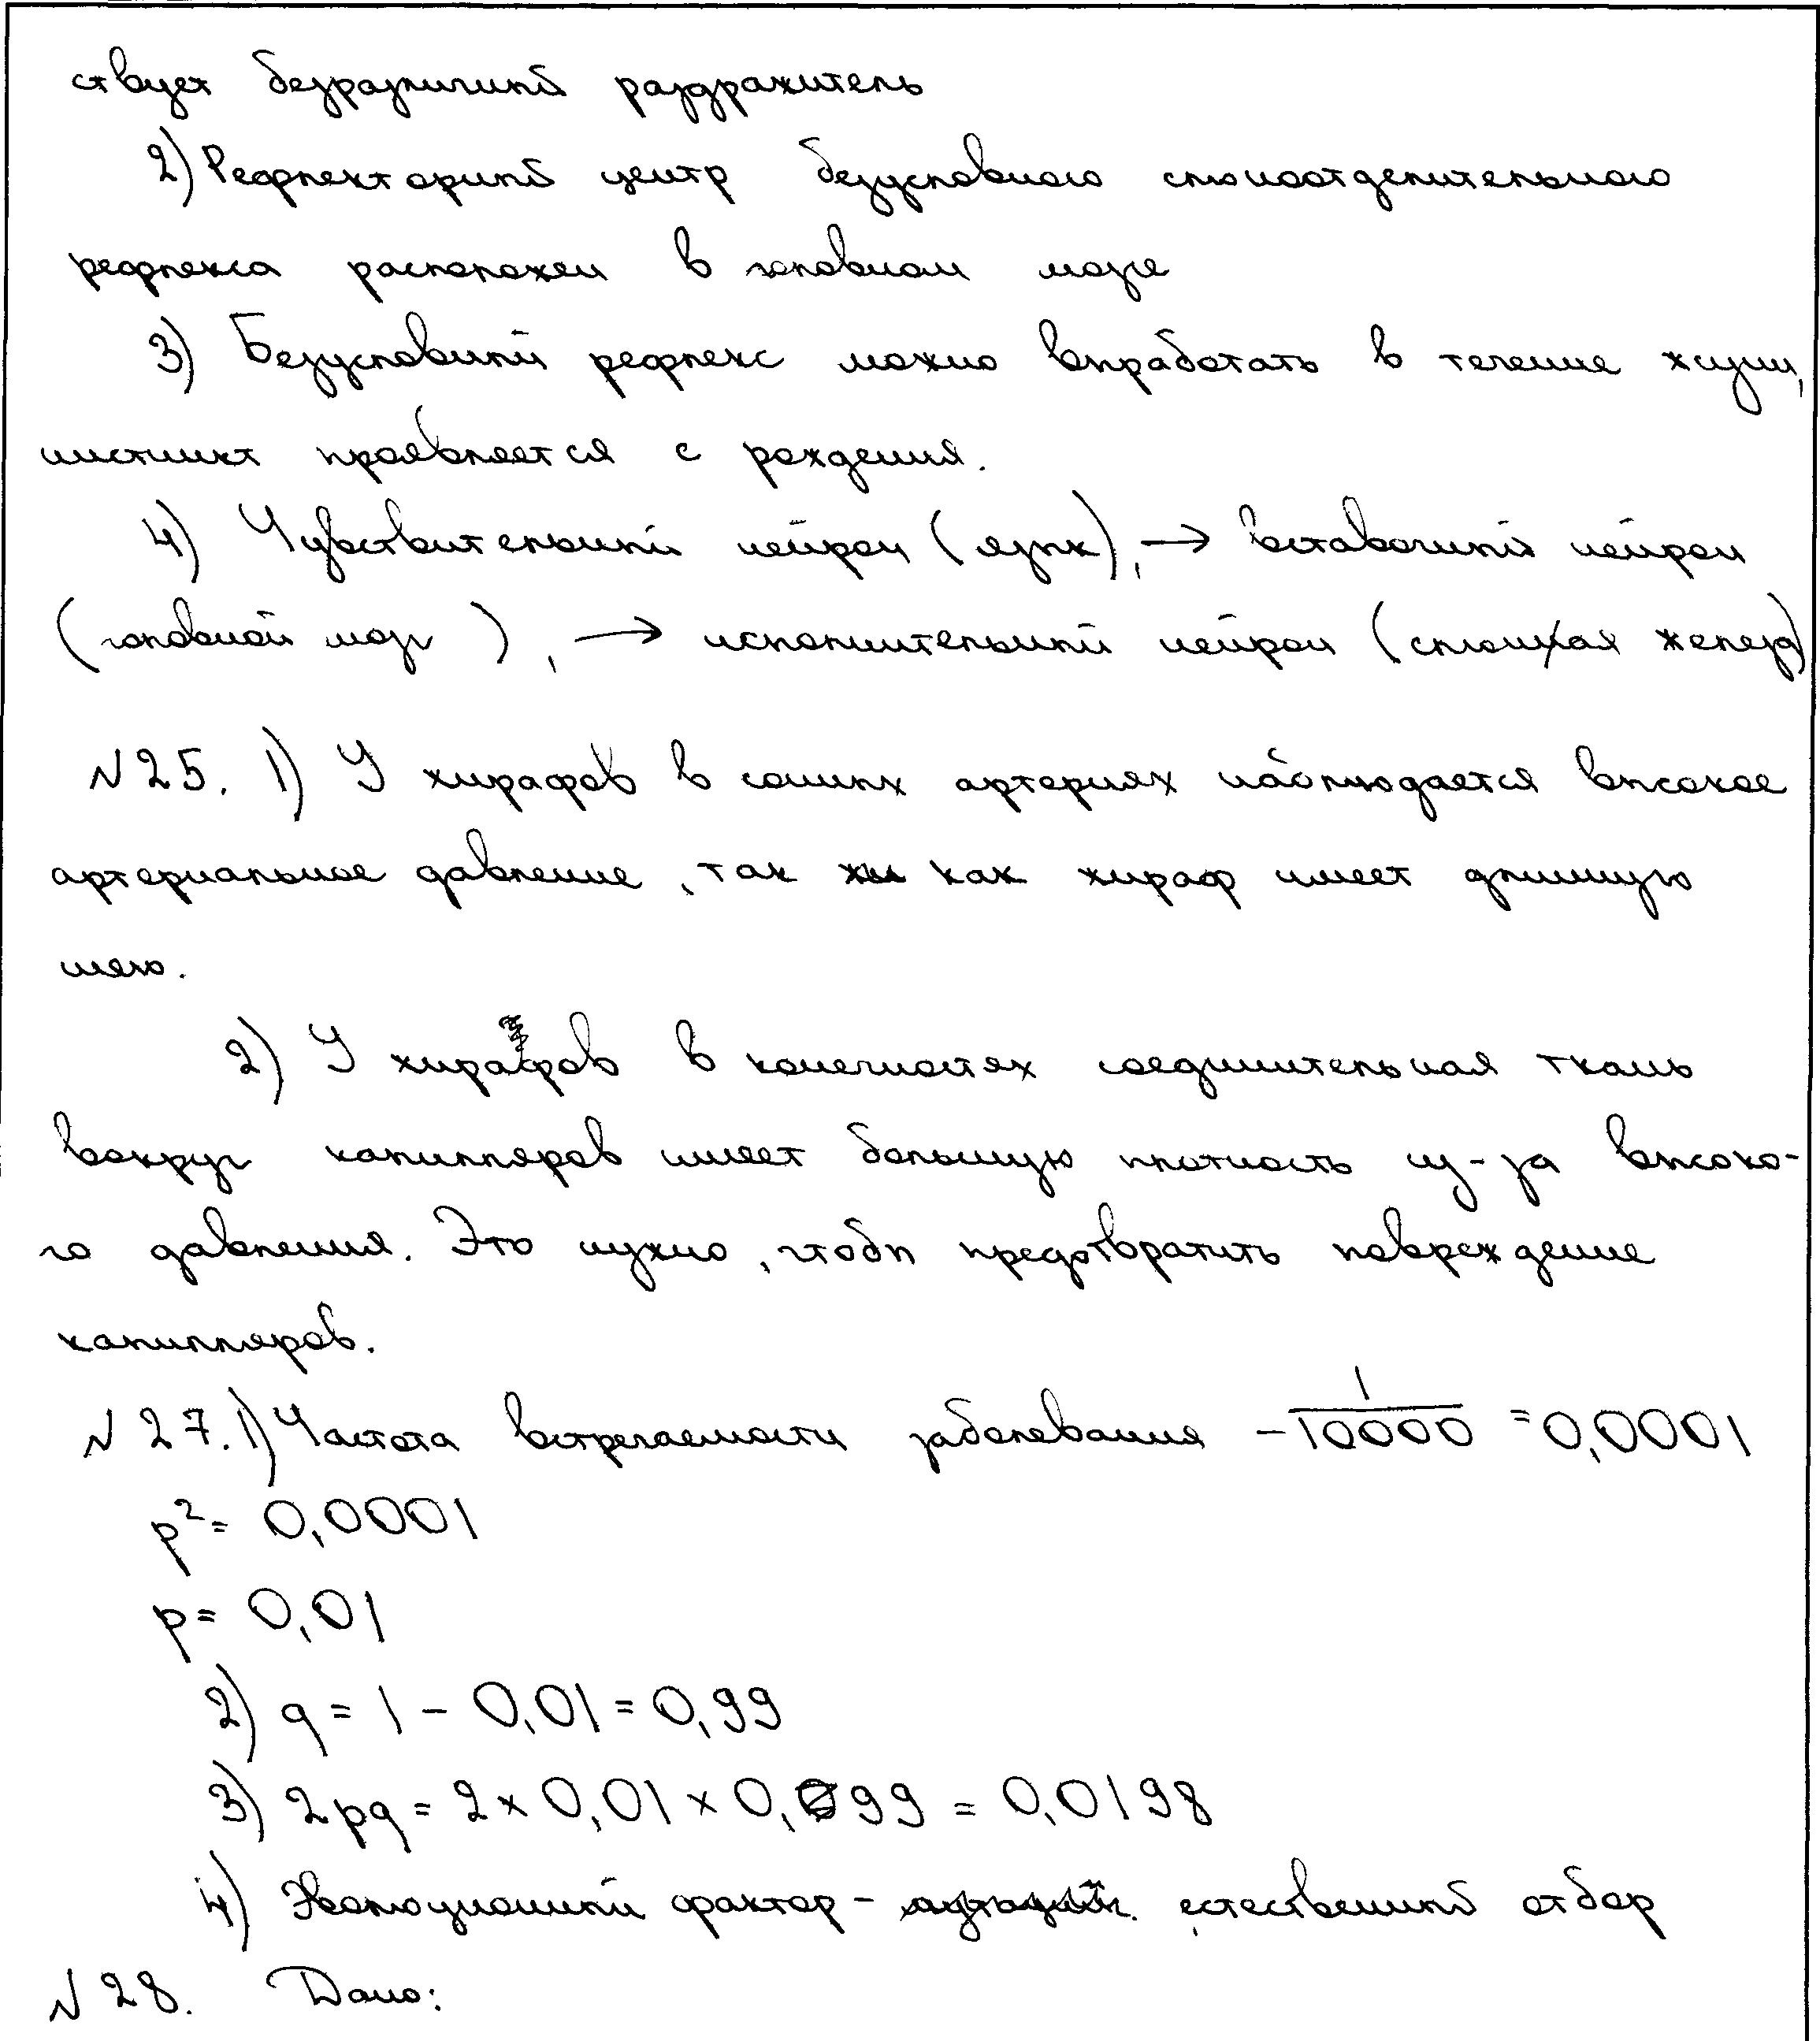 ствует безразличный раздражитель
2) Рефлекторный центр безусловного слюноотделительного
рефлекса расположен в головном мозге
3) Безусловный рефлекс можно выработать в течение жизни,
инстинкт проявляется с рождения.
4) Чувствительный нейрон (язык), → вставочный нейрон
(головной мозг ), → исполнительный нейрон (слюнная железа)
№ 25. 1) У жирафов в сонных артериях наблюдается высокое
артериальное давление, так как жираф имеет длинную
шею.
2) У жирафов в конечностях соединительная ткань
вокруг капилляров имеет большую плотность из-за высоко-
го давления. Это нужно, чтобы предотвратить повреждение
капилляров.
№ 27. 1) Частота встречаемости заболевания - 1/10000 = 0,0001
p² = 0,0001
p = 0,01
2) q = 1 - 0,01 = 0,99
3) 2pq = 2 × 0,01 × 0,99 = 0,0198
4) Эволюционный фактор - естественный отбор
№ 28. Дано: